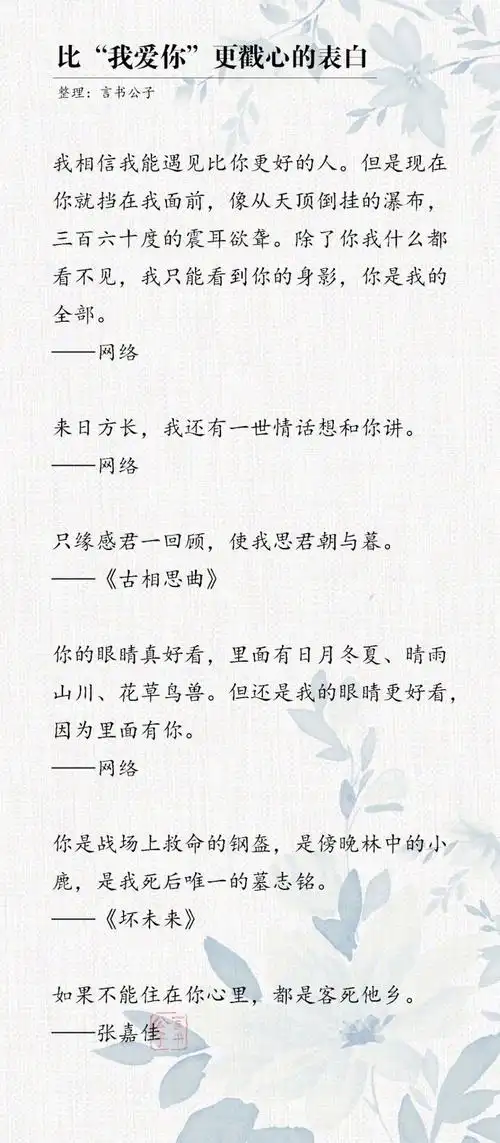 比“我爱你”更戳心的表白
整理：言书公子
我相信我能遇见比你更好的人。但是现在
你就挡在我面前，像从天顶倒挂的瀑布，
三百六十度的震耳欲聋。除了你我什么都
看不见，我只能看到你的身影，你是我的
全部。
——网络
来日方长，我还有一世情话想和你讲。
——网络
只缘感君一回顾，使我思君朝与暮。
——《古相思曲》
你的眼睛真好看，里面有日月冬夏、晴雨
山川、花草鸟兽。但还是我的眼睛更好看，
因为里面有你。
——网络
你是战场上救命的钢盔，是傍晚林中的小
鹿，是我死后唯一的墓志铭。
——《坏未来》
如果不能住在你心里，都是客死他乡。
——张嘉佳